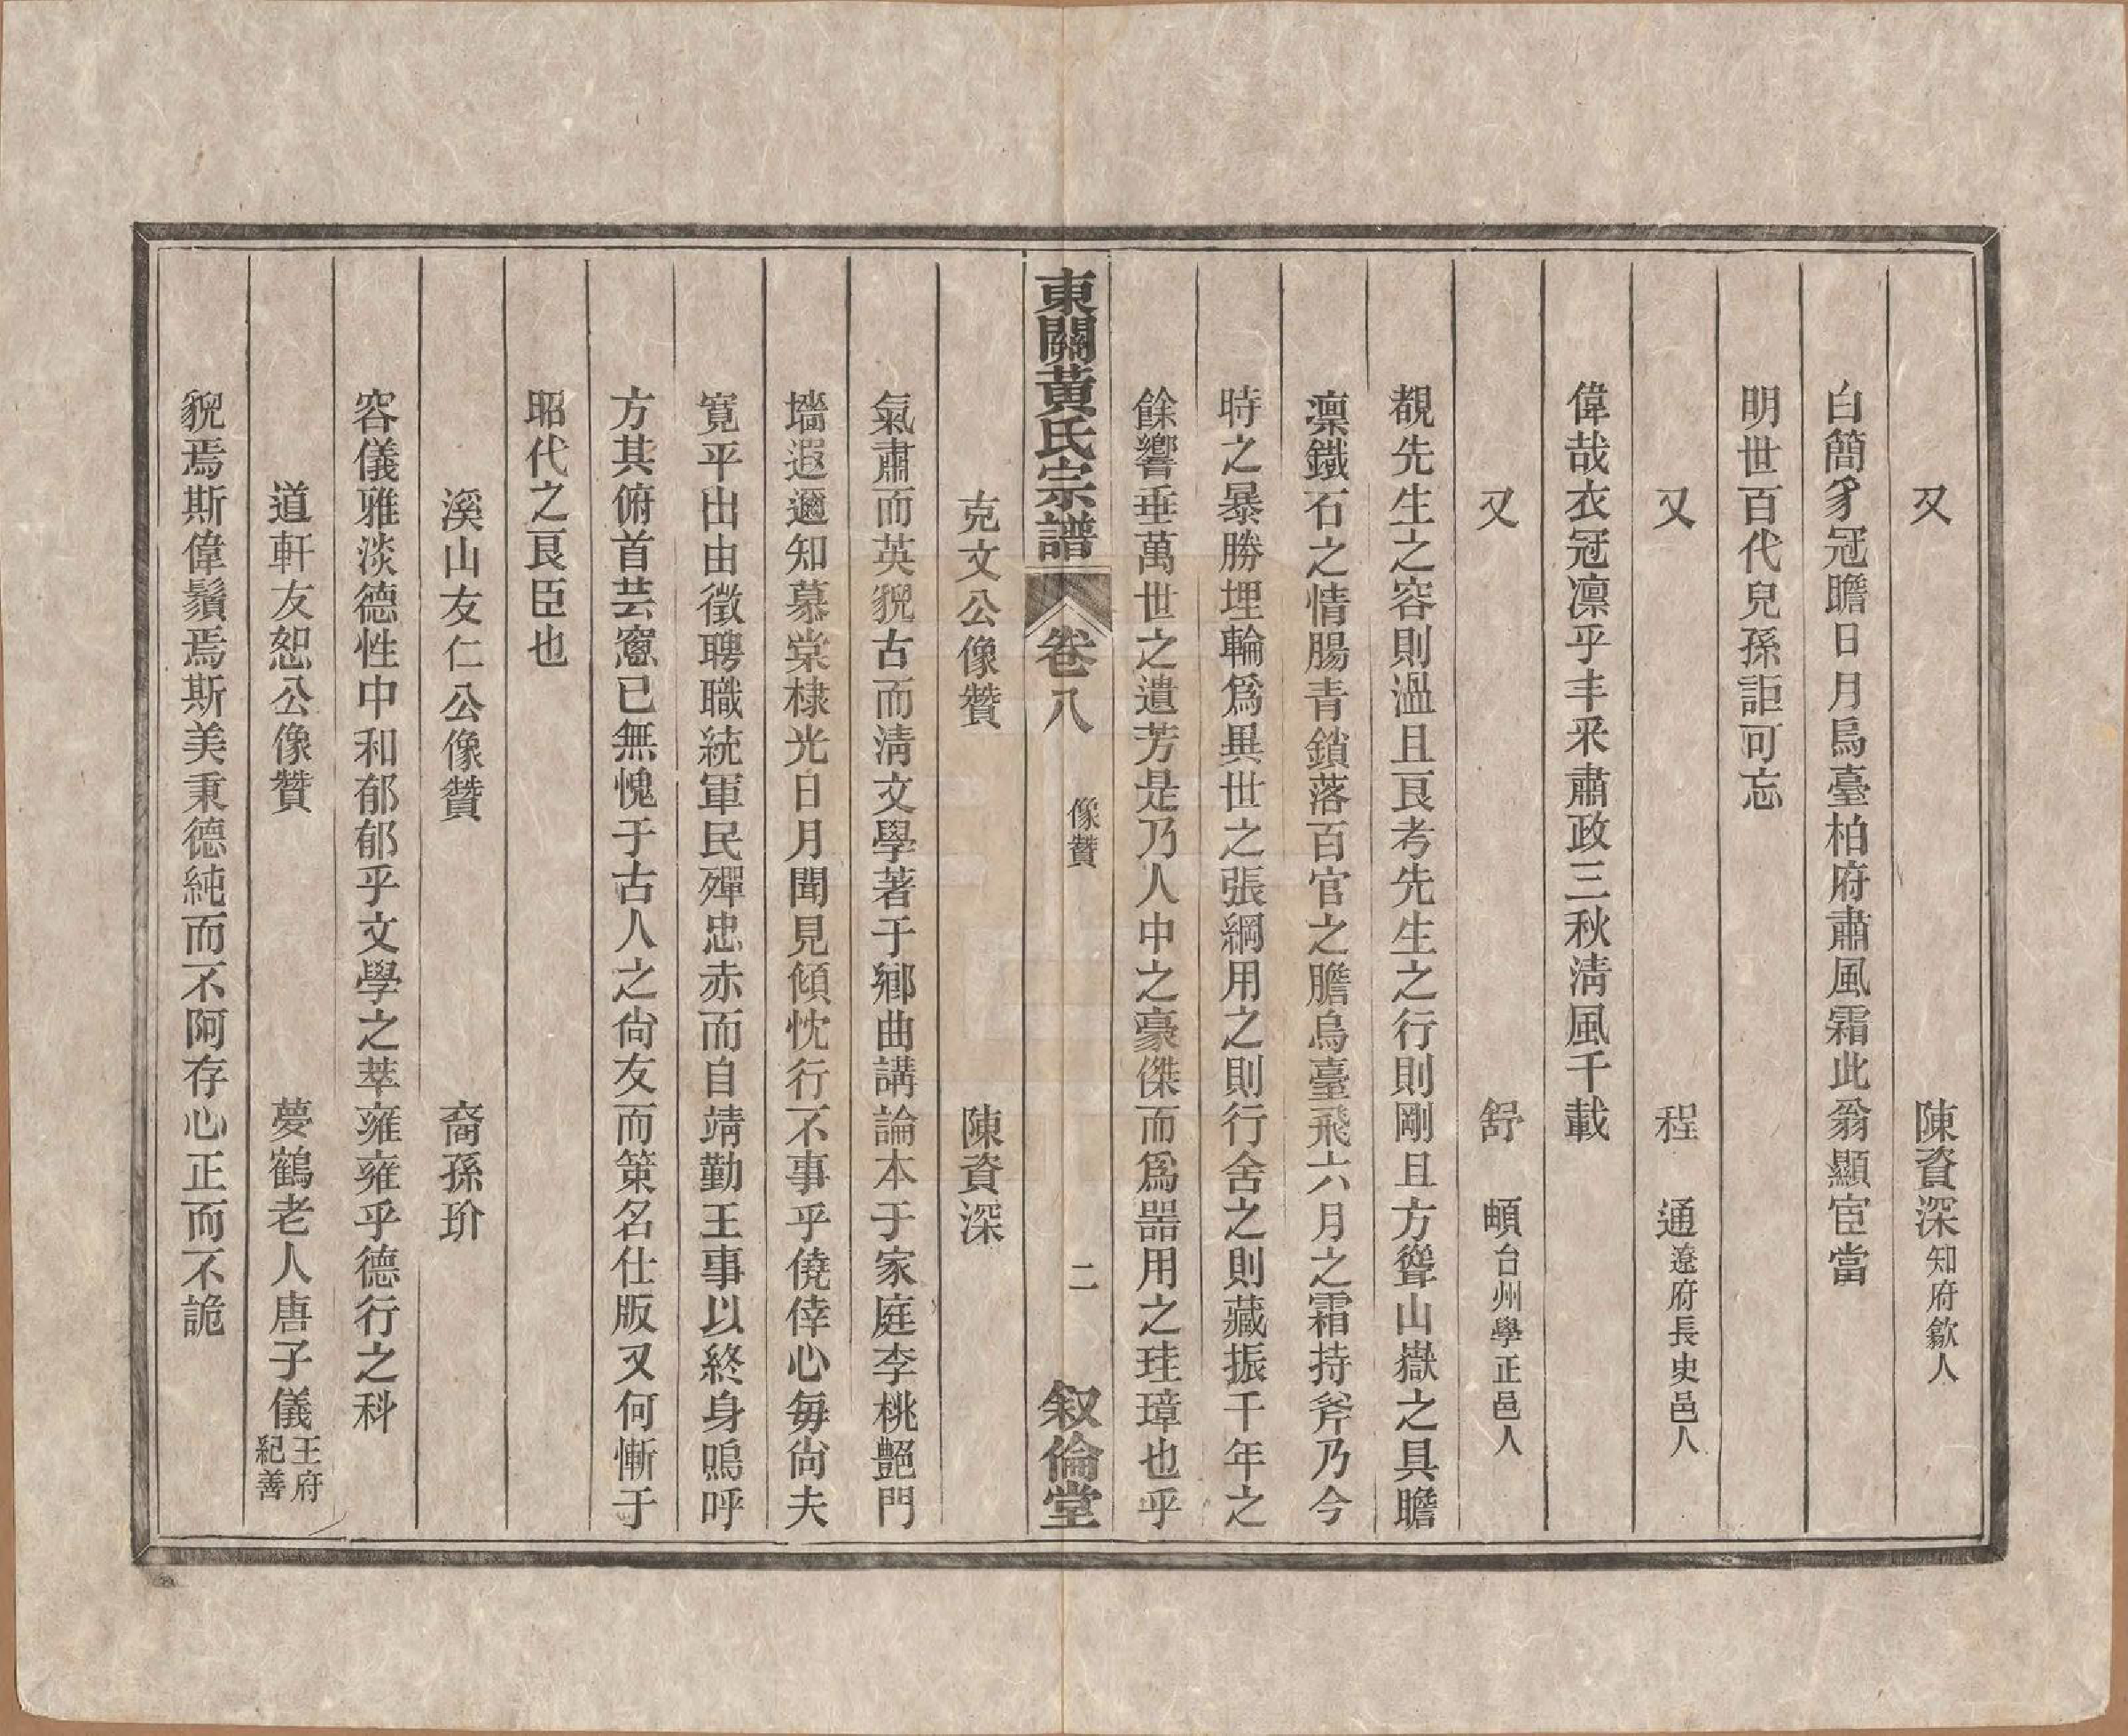 又　陳資深知府歙人
白簡豸冠瞻日月烏臺柏府肅風霜此翁顯宦當
明世百代兒孫詎可忘
又　程　通遼府長史邑人
偉哉衣冠凜乎丰采肅政三秋淸風千載
又　舒　頔台州學正邑人
覩先生之容則溫且艮考先生之行則剛且方聳山嶽之具瞻
凛鐵石之情腸青鎖落百官之膽烏臺飛六月之霜持斧乃今
時之暴勝埋輪爲異世之張綱用之則行舍之則藏振千年之
餘響垂萬世之遺芳是乃人中之豪傑而爲噐用之珪璋也乎
東關黃氏宗譜　卷八　像贊　二　叙倫堂
克文公像贊　陳資深
氣肅而英貌古而淸文學著于鄉曲講論本于家庭李桃艷門
墻遐邇知慕棠棣光日月聞見傾忱行不事乎僥倖心每尙夫
寬平出由徵聘職統軍民殫忠赤而自靖勤王事以終身嗚呼
方其俯首芸窻已無愧于古人之尙友而策名仕版又何慚于
昭代之艮臣也
溪山友仁公像贊　裔孫玠
容儀雅淡德性中和郁郁乎文學之萃雍雍乎德行之科
道軒友恕公像贊　夢鶴老人唐子儀王府紀善
貌焉斯偉鬚焉斯美秉德純而不阿存心正而不詭